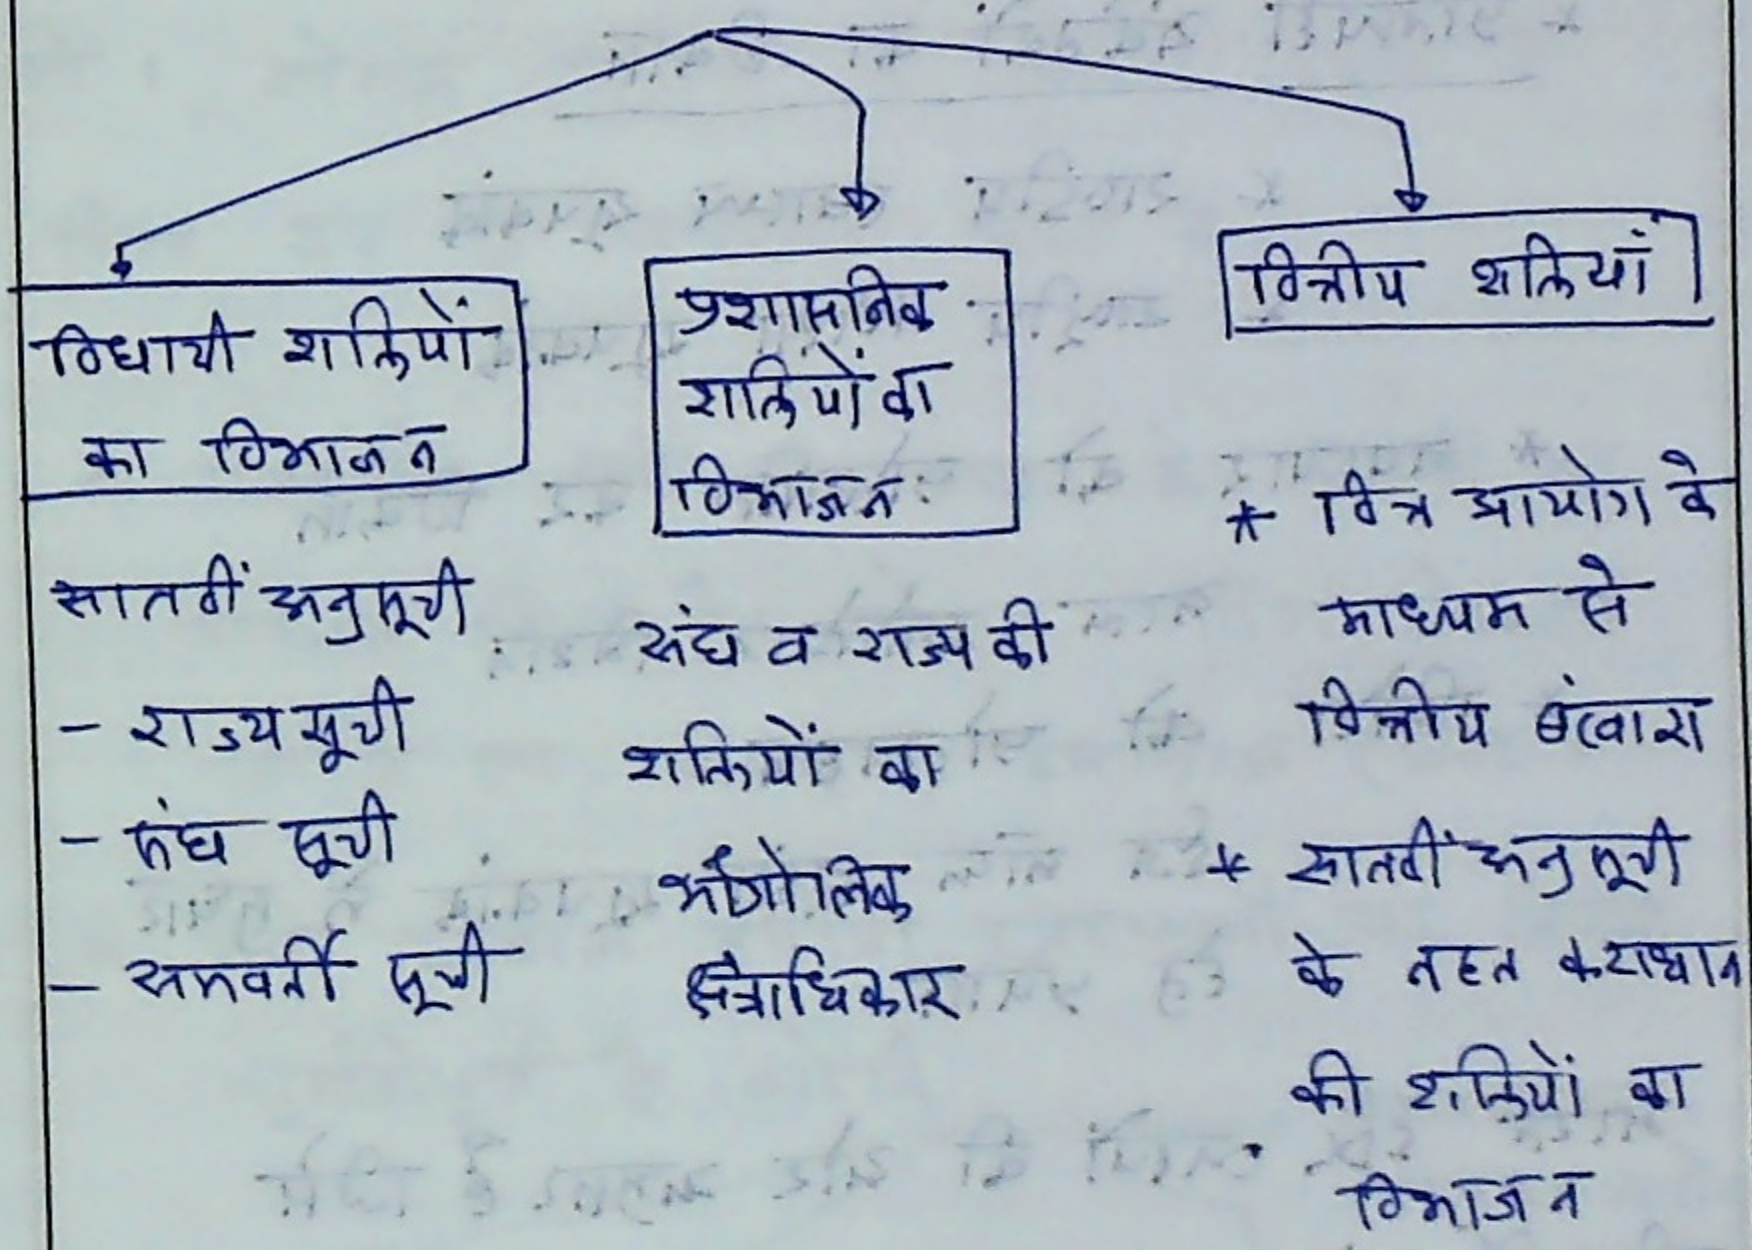 विधायी शक्तियों
का विभाजन
सातवीं अनुसूची
- राज्य सूची
- संघ सूची
- समवर्ती सूची
प्रशासनिक
शक्तियों का
विभाजन
संघ व राज्य की
शक्तियों का
भौगोलिक
क्षेत्राधिकार
वित्तीय शक्तियाँ
* वित्त आयोग के
माध्यम से
वित्तीय बंटवारा
* सातवीं अनुसूची
के तहत कराधान
की शक्तियों का
विभाजन